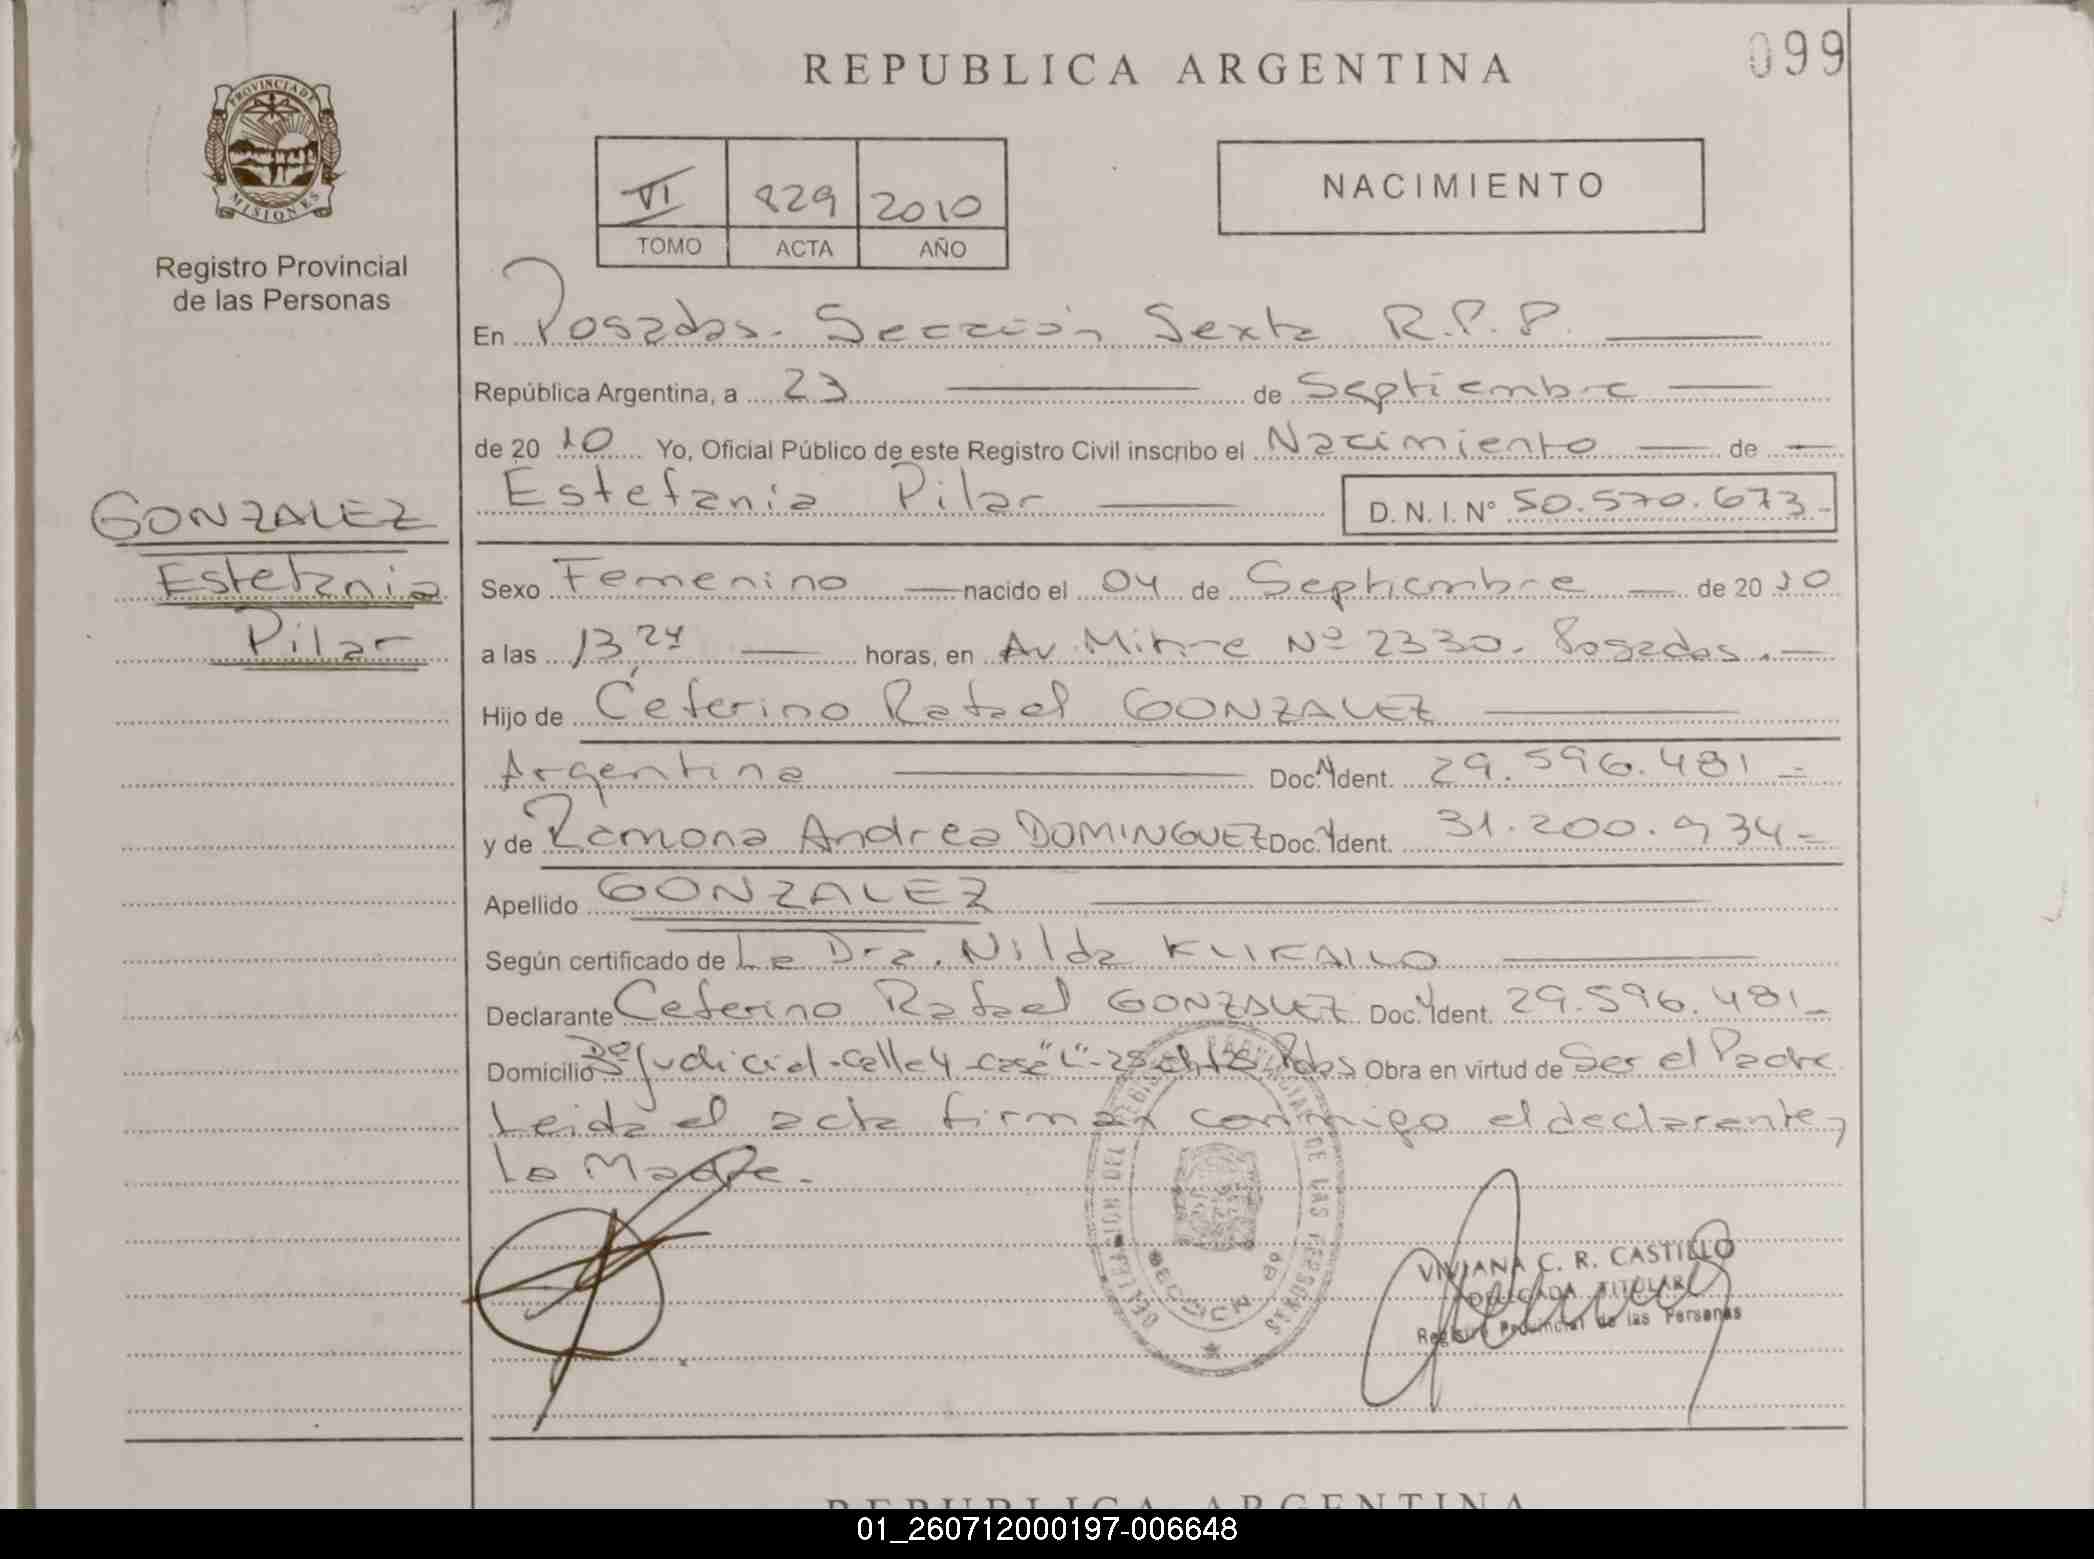 REPUBLICA ARGENTINA
099
PROVINCIA DE
MISIONES
Registro Provincial
de las Personas
VI 829 2010
TOMO ACTA AÑO
NACIMIENTO
En Posadas. Sección Sexta R.P.P.
República Argentina, a 23 de Septiembre
de 2010 Yo, Oficial Público de este Registro Civil inscribo el Nacimiento de
Estefania Pilar D.N.I. N° 50.570.673-
GONZALEZ
Estefania
Pilar
Sexo Femenino nacido el 04 de Septiembre de 2010
a las 13,24 horas, en Av. Mitre Nº 2330. Posadas.
Hijo de Ceferino Rafael GONZALEZ
Argentina Doc. Ident. 29.596.481
y de Ramona Andrea DOMINGUEZ Doc. Ident. 31.200.934
Apellido GONZALEZ
Según certificado de La Dra. Nilda
Declarante Ceferino Rafael GONZALEZ Doc. Ident. 29.596.481
Domicilio Bº Judicial-Calle 4-casa "L"-28 Obra en virtud de Ser el Padre
Leida el acta firman conmigo el declarante y
La Madre.
DELEGACION DEL REGISTRO PROVINCIAL DE LAS PERSONAS
SECCION 6a
VIVIANA C. R. CASTILLO
DELEGADA TITULAR
Registro Provincial de las Personas
REPUBLICA ARGENTINA
01_260712000197-006648